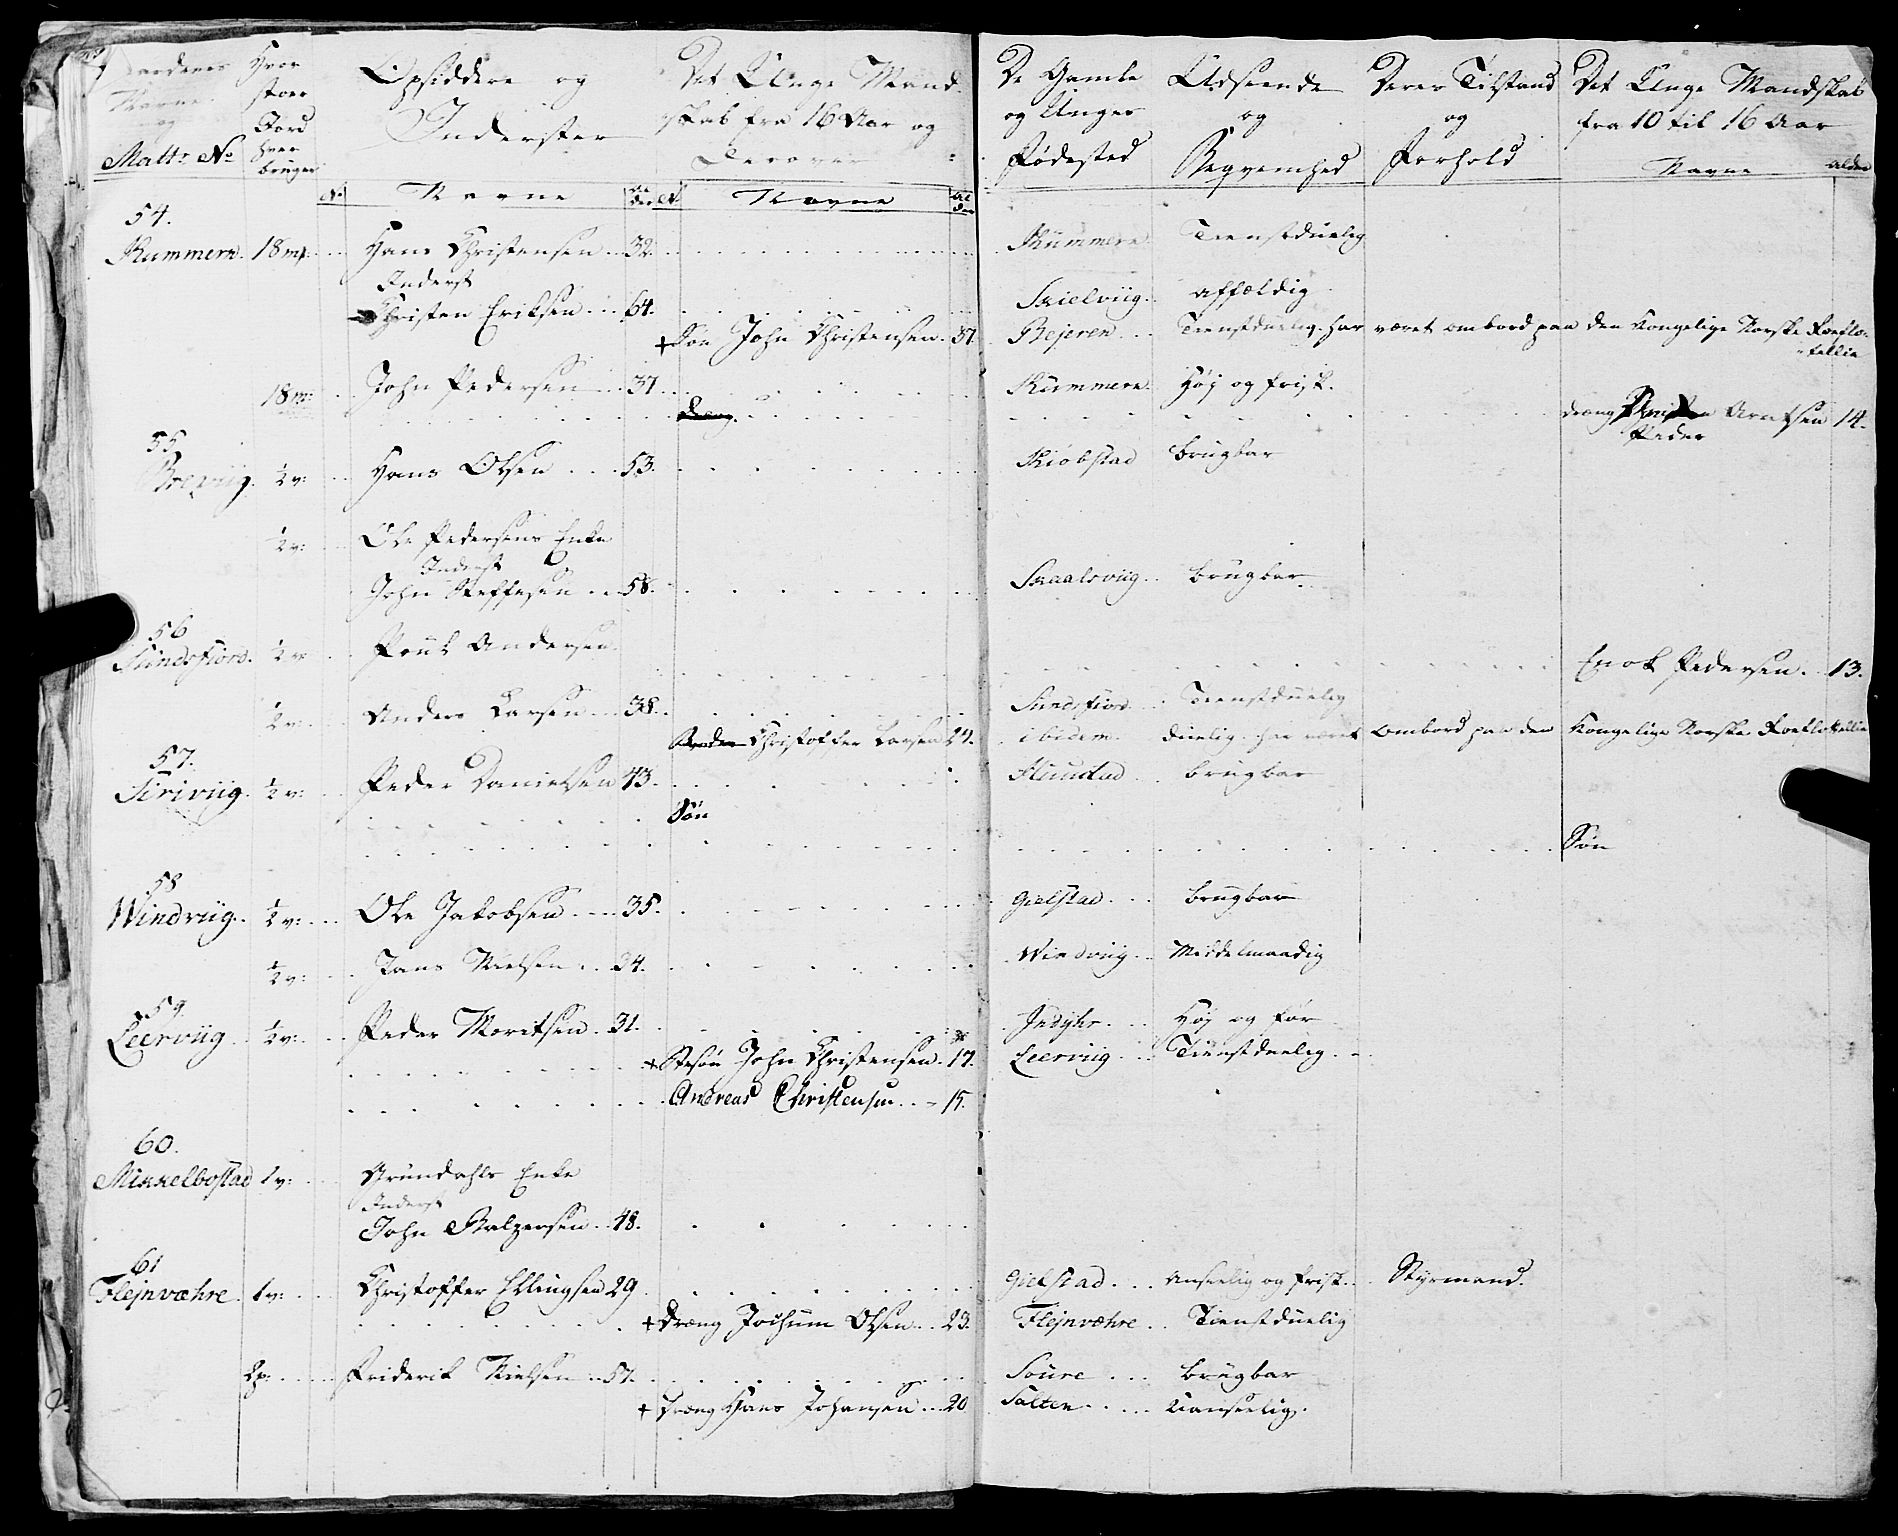 Gaardenes Navne og Matlr No
Hvor stoer Jord hver bruger
Opsiddere og Inderster
Det Unge Mandskab fra 16 Aar og
De Gamle og Unges Fødested
Udseende og Beqvemhed
Deres Tilstand og Forhold
Det Unge Mandskab fra 10 til 16 Aar
No Navne Alder No Navne Alder Navne Alder
54.
Kummern. 18 mf: Hans Christensen 32. Kummern Tienstduelig
Inderst
Christen Eriksen 64. Skielviig. affældig
+ Søn John Christensen. 37. Bejeren Tienstduelig. har været ombord paa den Kongelige Norske Roeflotillie
18 m: John Pedersen 37 Kummern Høj og frisk.
dreng Arntsen 14.
Peder
55
Breviig. ½ v: Hans Olsen 53. Kiobstad brugbar
½ v: Ole Pedersens Enke
Inderst
John Steffesen 58. Skaalsviig brugbar
56
Sundsfiord. ½ v Poul Andersen
Enok Pedersen. 13.
½ v: Anders Larsen 38. Sundsfiord Tienstduelig
Christoffer Larsen 24. ibidem. duelig har været ombord paa den Kongelige Norske Roeflottellie
57.
Siriviig. ½ v: Peder Danielsen 43. brugbar
Søn
Søn
58
Windviig. ½ v: Ole Jakobsen 35. Gielstad brugbar
½ v: Jans Nielsen 34. Windviig Middelmaadig
59.
Leerviig ½ v: Peder Moritsen 31. Indyhr Høj og før
+ Stesøn John Christensen. 17. Leerviig Tienstduelig.
Andreas Christensen 15.
60.
Mikkelbostad 1 v: Grundahls Enke
Inderst
John Balzersen 48.
61
Flejnvæhre. 1 v: Christoffer Ellingsen 29 Gielstad anseelig og frisk. Styrmand.
+ Dreng Jochum Olsen 23. Flejnvæhre Tienstduelig
2 p: Friderik Nielsen 57. Soure brugbar
+ Dreng Hans Johansen 20 Salten Uanseelig.